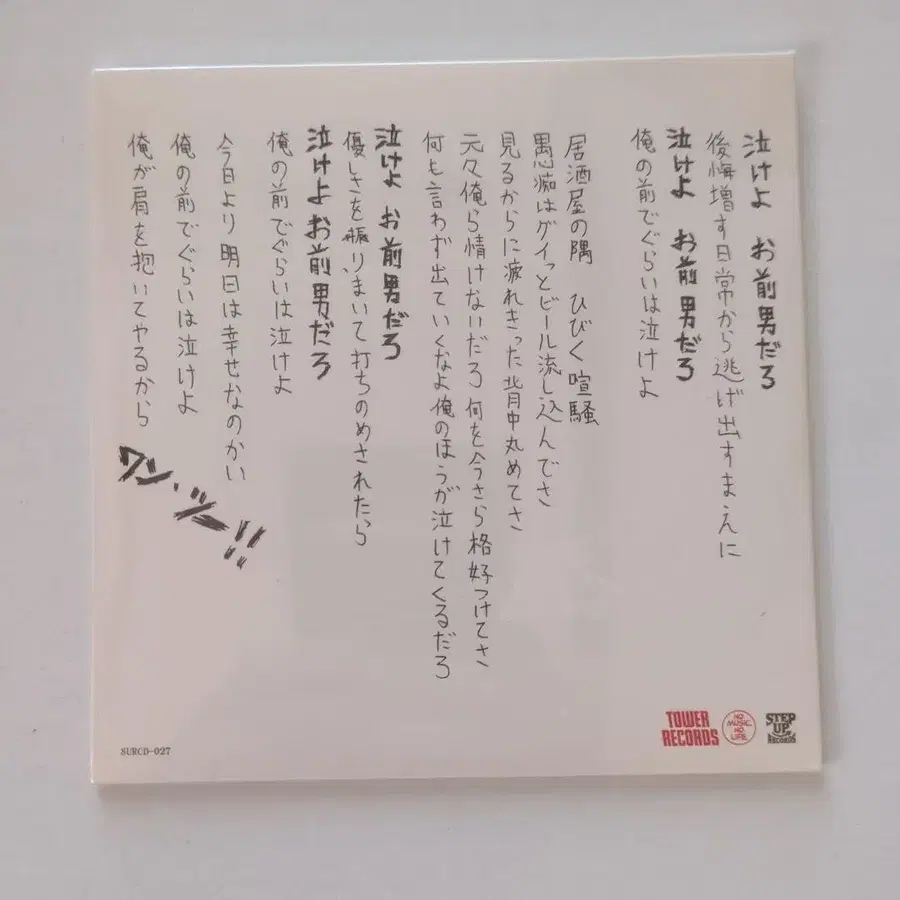 泣けよ お前男だろ
後悔増す日常から逃げ出すまえに
泣けよ お前男だろ
俺の前でぐらいは泣けよ
居酒屋の隅 ひびく喧騒
愚痴はグイっとビール流し込んでさ
見るからに疲れきった背中丸めてさ
元々俺ら情けないだろ 何を今さら格好つけてさ
何も言わず出ていくなよ俺のほうが泣けてくるだろ
泣けよ お前男だろ
優しさを振りまいて打ちのめされたら
泣けよ お前男だろ
俺の前でぐらいは泣けよ
今日より明日は幸せなのかい
俺の前でぐらいは泣けよ
俺が肩を抱いてやるから
ワン、ツー!!
SURCD-027
TOWER
RECORDS
NO
MUSIC,
NO
LIFE.
STEP
UP
RECORDS